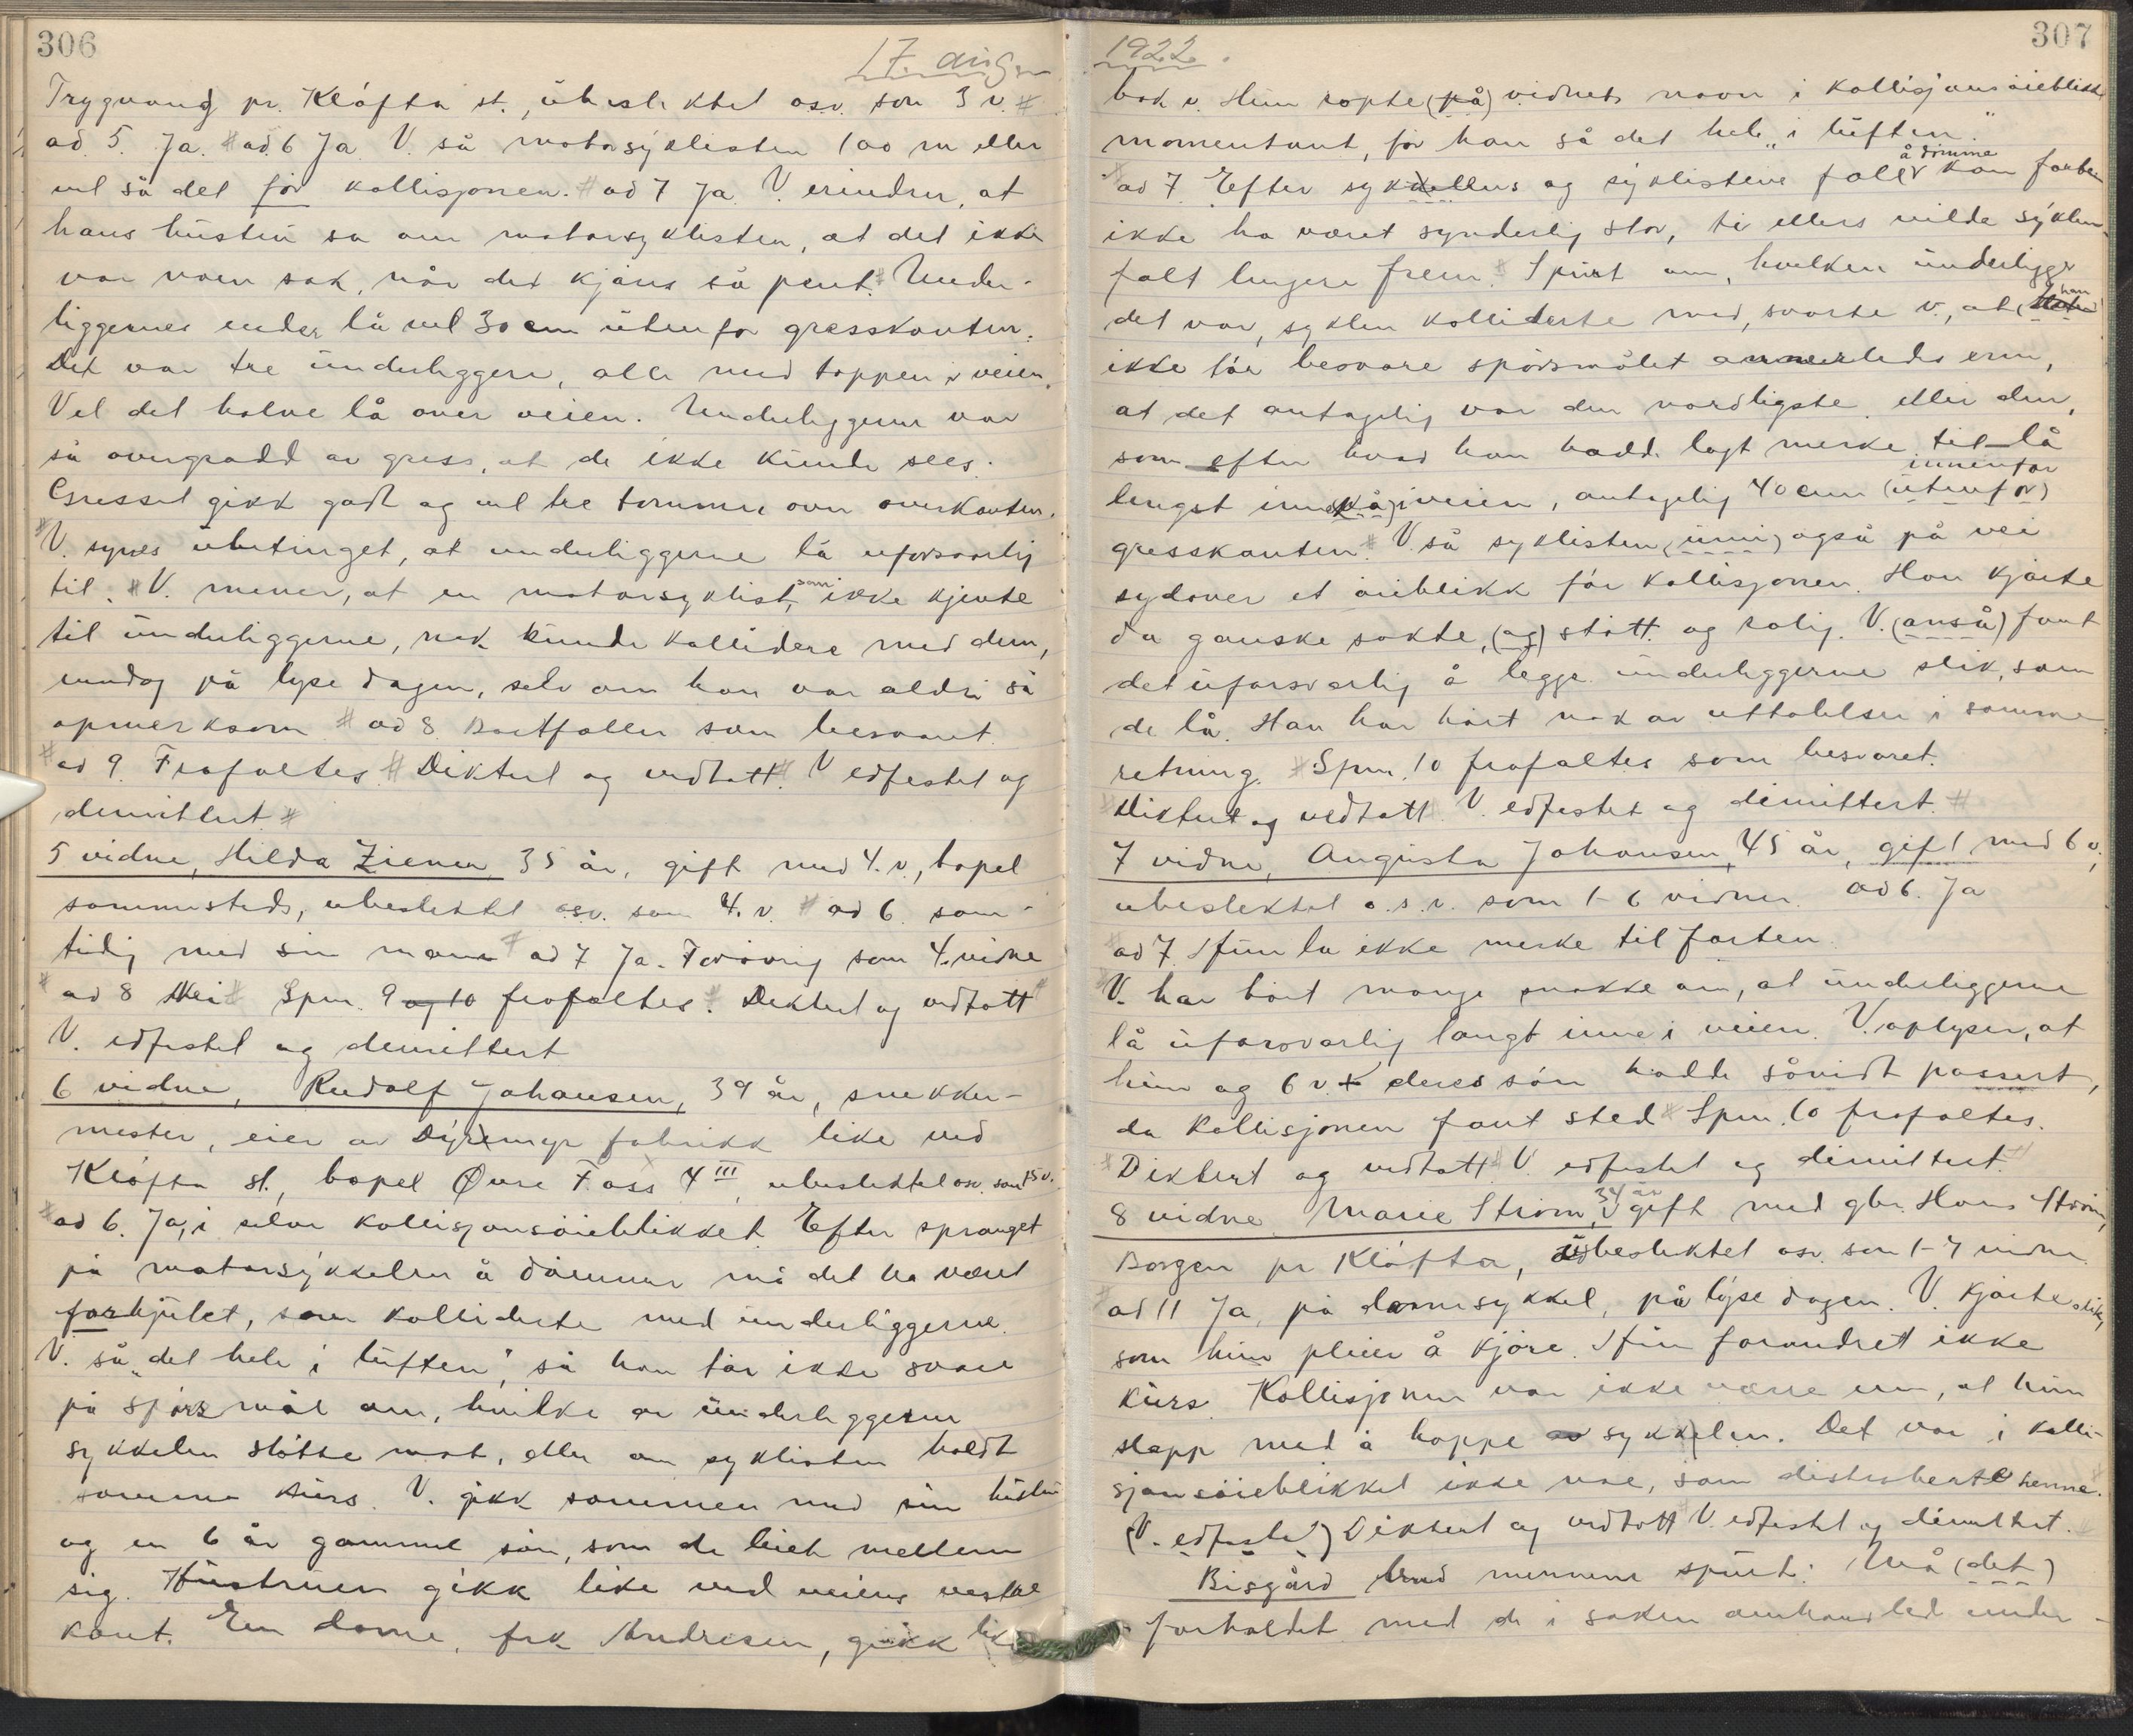 306
17. aug.
Trygvang pr. Kløfta st., ubeslektet osv. som 3 v. #
ad. 5. Ja. # ad. 6 Ja. V. så motorsyklisten 100 m eller
vel så det før kollisjonen. # ad 7 Ja. V. erindrer, at
hans hustru sa om motorsyklisten, at det ikke
var noen sak, når det kjøres så pent. # Under-
liggernes ender lå vel 30 cm utenfor gresskanten.
Det var tre underliggere, alle med toppen i veien.
Vel det halve lå over veien. Underliggerne var
så overgrodd av gress, at de ikke kunde sees.
Gresset gikk godt og vel tre tommer over overkanten.
# V. synes ubetinget, at underliggerne lå uforsvarlig
til. # V. mener, at en motorsyklist, som ikke kjente
til underliggerne, nok kunde kollidere med dem,
endog på lyse dagen, selv om han var aldri så
opmerksom. # ad 8. Bortfaller som besvart.
# ad 9. Frafaltes. # Diktert og vedtatt. # V edfestet og
demittert #
5 vidne, Hilda Ziener, 35 år, gift med 4. v., bopel
sammesteds, ubeslektet osv. som 4. v. # ad 6. sam-
tidig med sin mann # ad 7 Ja. Forøvrig som 4. vidne
# ad 8 Nei # Spm. 9 og 10 frafaltes. # Diktert og vedtatt #
V. edfestet og demittert
6 vidne, Rudolf Johansen, 39 år, snekker-
mester, eier av Dyremyr fabrikk like ved
Kløfta st., bopel Øvre Foss 4 III, ubeslektet osv. som 1-5 v.
# ad 6. Ja, i selve kollisjonsøieblikket. Efter spranget
på motorsykkelen å dømme må det ha været
forhjulet, som kolliderte med underliggerne.
V. så „det hele i luften", så han tør ikke svare
på spørsmål om, hvilke av underliggerne
sykkelen støtte mot, eller om syklisten holdt
samme kurs. V. gikk sammen med sin hustru
og en 6 år gammel søn, som de leiet mellem
sig. Hustruen gikk like ved veiens vestre
kant. En dame, frk. Andresen, gikk like
307
1922.
bak v. Hun ropte (på) vidnets navn i kollisjonsøieblikket
momentant, for han så det hele „i luften."
# ad 7. Efter sykkelens og syklistens fall å dømme kan farten
ikke ha været synderlig stor, ti ellers vilde syklen
falt lengere frem. # Spurt om, hvilken underligger
det var, syklen kolliderte med, svarte v., at han
ikke tør besvare spørsmålet anerledes enn,
at det antagelig var den nordligste eller den,
som efter hvad han hadde lagt merke til lå
lengst inn (på) i veien, antagelig 40 cm (utenfor) innenfor
gresskanten. # V. så syklisten (inni) også på vei
sydover et øieblikk før kollisjonen. Han kjørte
da ganske sakte, (og) støtt og rolig. V. (anså) fant
det uforsvarlig å legge underliggerne slik, som
de lå. Han har hørt nok av uttalelser i samme
retning. # Spm. 10 frafaltes som besvaret.
# Diktert og vedtatt # V. edfestet og dimittert. #
7 vidne, Augusta Johansen, 45 år, gift med 6 v.,
ubeslektet o.s.v. som 1-6 vidner. ad 6. Ja
# ad 7. Hun la ikke merke til farten.
# V. har hørt mange snakke om, at underliggerne
lå uforsvarlig langt inne i veien. V. oplyser, at
hun og 6 v. + deres søn hadde såvidt passert,
da kollisjonen fant sted # Spm. 10 frafaltes.
# Diktert og vedtatt # V. edfestet og dimittert. #
8 vidne Marie Strøm, 34 år gift med gbr. Hans Strøm,
Borgen pr Kløfta, ubeslektet osv. som 1-7 vidne.
# ad 11 Ja, på damesykkel, på lyse dagen. V. kjørte slik,
som hun pleier å kjøre. Hun forandret ikke
kurs. Kollisjonen var ikke værre enn, at hun
slapp med å hoppe av sykkelen. Det var i kolli-
sjonsøieblikket ikke noe, som distraherte henne. #
(V. edfestet) Diktert og vedtatt # V. edfestet og dimittert. #
Bisgård med mennene spurt: Må (det)
forholdet med de i saken omhandlede under-